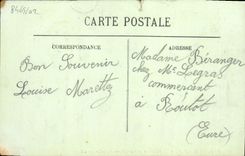 CARTE POSTALE
CORRESPONDANCE
Bon Souvenir
Louise Marette
ADRESSE
Madame Béranger
chez Mr Legras
commercant
à Routot
(Eure)